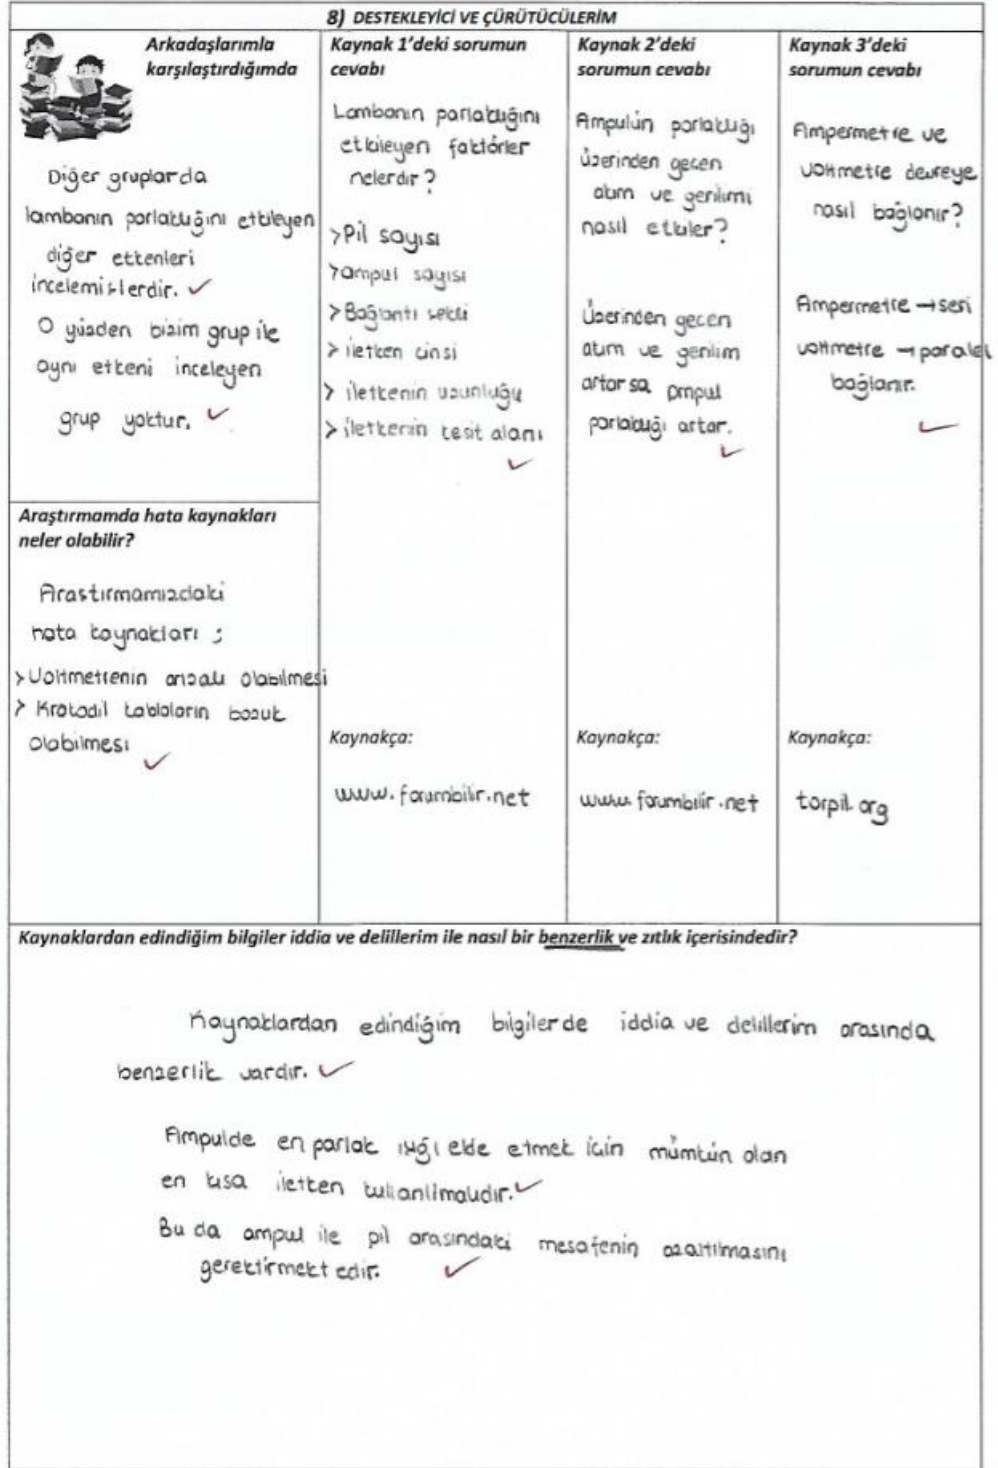 8) DESTEKLEYİCİ VE ÇÜRÜTÜCÜLERİM
Arkadaşlarımla
karşılaştırdığımda
Diğer gruplarda
lambanın parlaklığını etkileyen
diğer etkenleri
incelemişlerdir. ✓
O yüzden bizim grup ile
aynı etkeni inceleyen
grup yoktur. ✓
Araştırmamda hata kaynakları
neler olabilir?
Araştırmamızdaki
hata kaynakları ;
> Voltmetrenin arızalı olabilmesi
> Krokodil kabloların bozuk
olabilmesi ✓
Kaynak 1'deki sorumun
cevabı
Lambanın parlaklığını
etkileyen faktörler
nelerdir?
> Pil sayısı
> ampul sayısı
> Bağlantı şekli
> iletken cinsi
> iletkenin uzunluğu
> iletkenin kesit alanı
✓
Kaynakça:
www.forumbilir.net
Kaynak 2'deki
sorumun cevabı
Ampulün parlaklığı
üzerinden geçen
akım ve gerilimi
nasıl etkiler?
Üzerinden geçen
akım ve gerilim
artarsa ampul
parlaklığı artar.
✓
Kaynakça:
www.forumbilir.net
Kaynak 3'deki
sorumun cevabı
Ampermetre ve
voltmetre devreye
nasıl bağlanır?
Ampermetre → seri
voltmetre → paralel
bağlanır.
✓
Kaynakça:
torpil.org
Kaynaklardan edindiğim bilgiler iddia ve delillerim ile nasıl bir benzerlik ve zıtlık içerisindedir?
Kaynaklardan edindiğim bilgilerde iddia ve delillerim arasında
benzerlik vardır. ✓
Ampulde en parlak ışığı elde etmek için mümkün olan
en kısa iletken kullanılmalıdır. ✓
Bu da ampul ile pil arasındaki mesafenin azaltılmasını
gerektirmektedir. ✓